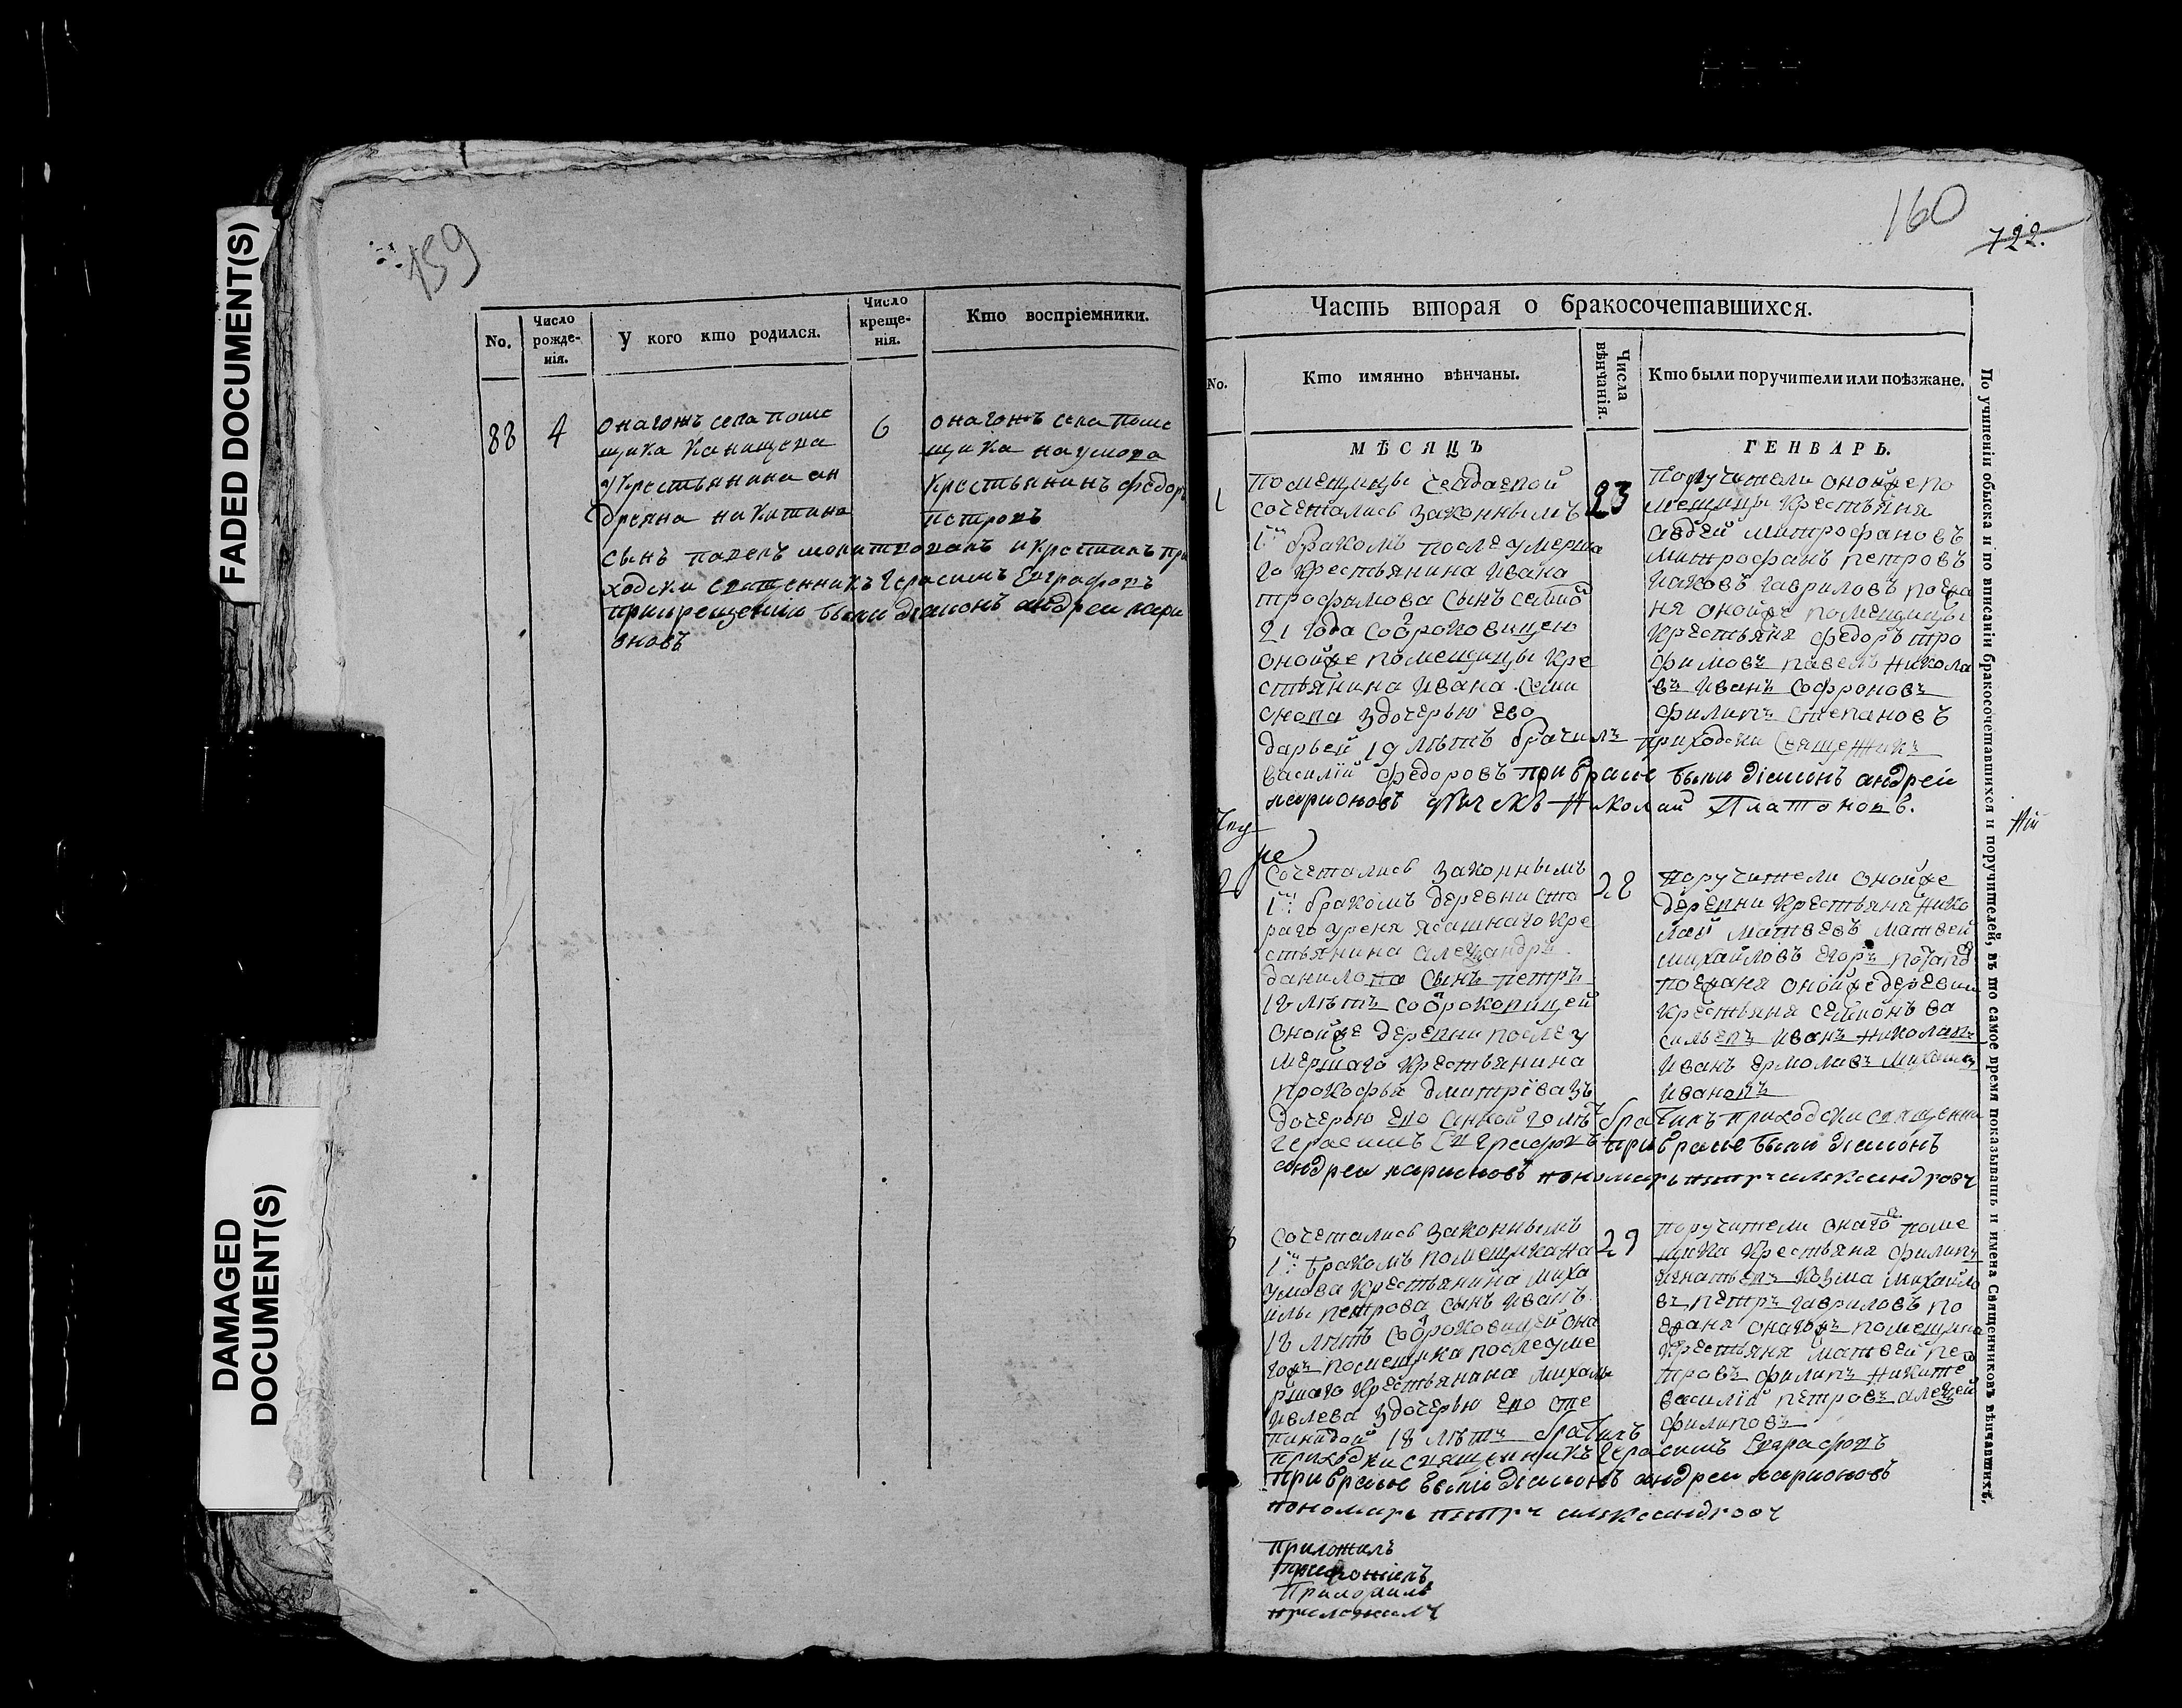 FADED DOCUMENT(S)
DAMAGED
DOCUMENT(S)
159
No.
Число
рожде-
нія.
У кого кто родился.
Число
креще-
нія.
Кто воспріемники.
88
4
онагожъ села поме
щика Канищева
у крестьянина ан
дреяна никитина
сынъ павелъ молитвовалъ и крстилъ при
ходски священникъ герасимъ Евграфовъ
при крещеніи были діаконъ андреи лари
оновъ
6
онагожъ села поме
щика наумова
крестьянинъ федоръ
петровъ
160
722.
Часть вторая о бракосочетавшихся.
No.
Кто имянно вѣнчаны.
Числа
вѣнчанія.
Кто были поручители или поѣзжане.
МѢСЯЦЪ
ГЕНВАРЬ.
1
помещицы
сочетались законнымъ
1 бракомъ после умерша
го крестьянина Ивана
трофимова сынъ
21 года соотроковицею
онойже помещицы кре
стьянина Ивана Семи
онова здочерью ево
дарьей 19 лѣтъ брачилъ приходски священникъ
василій федоровъ при браке были діаконъ андреи
ларионовъ Николай Платоновъ.
23
поручители онойже по
мещицы крестьяня
авдей митрофановъ
митрофанъ петровъ
Иаковъ гавриловъ поежа
ня онойже помещицы
крестьяня федоръ тро
фимовъ павелъ никола
въ иванъ софроновъ
филипъ степановъ
2
Сочетались законнымъ
1 бракомъ деревни ста
раго уреня ясашнаго кре
стьянина алеѯандра
данилова сынъ петръ
18 лѣтъ соотроковицей
онойже деревни после у
мершаго крестьянина
прокофья дмитріева зъ
дочерью ево анной 20 лѣтъ брачилъ приходски священни
герасимъ Евграфовъ при браке были діаконъ
андреи ларионовъ пономарь петръ александровъ
28
поручители онойже
деревни крестьяня нико
лай матвеевъ матвей
михайловъ егоръ потапо
поежаня онойже деревни
крестьяня семионъ ва
сильевъ иванъ николаевъ
иванъ ермолаевъ михаилъ
ивановъ
3
сочетались законнымъ
1 бракомъ помещика на
умова крестьянина миха
илы петрова сынъ иванъ
18 лѣтъ соотроковицей она
гожъ помещика после уме
ршаго крестьянина михаилы
ивлева здочерью ево сте
панидой 18 лѣтъ брачилъ
приходски священникъ герасимъ Евграфовъ
при браке были діаконъ андреи ларионовъ
пономарь петръ александровъ
29
поручители онаго поме
щика крестьяня филипъ
игнатьевъ козма михаило
въ петръ гавриловъ по
ежаня онагожъ помещика
крестьяня матвей пе
тровъ филипъ никите
василій петровъ алеѯей
филиповъ
приложилъ
приложилъ
приложилъ
приложилъ
По учиненіи обыска и по вписаніи бракосочетавшихся и поручителей, въ то самое время показывать и имена Священниковъ вѣнчавшихъ.